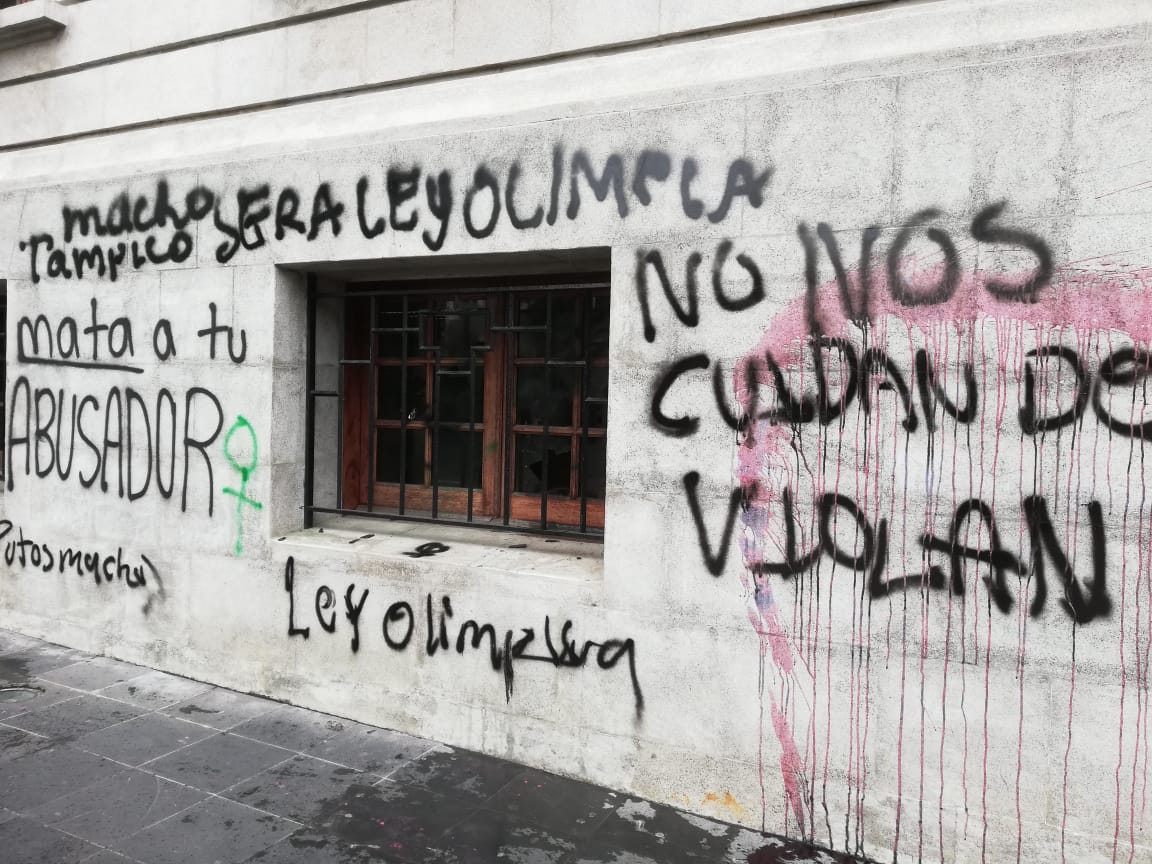 macho
Tampico SERA LEY OLIMPIA
mata a tu
ABUSADOR
Putos machos
Ley Olimpia
NO NOS
CUIDAN DE
VIOLAN